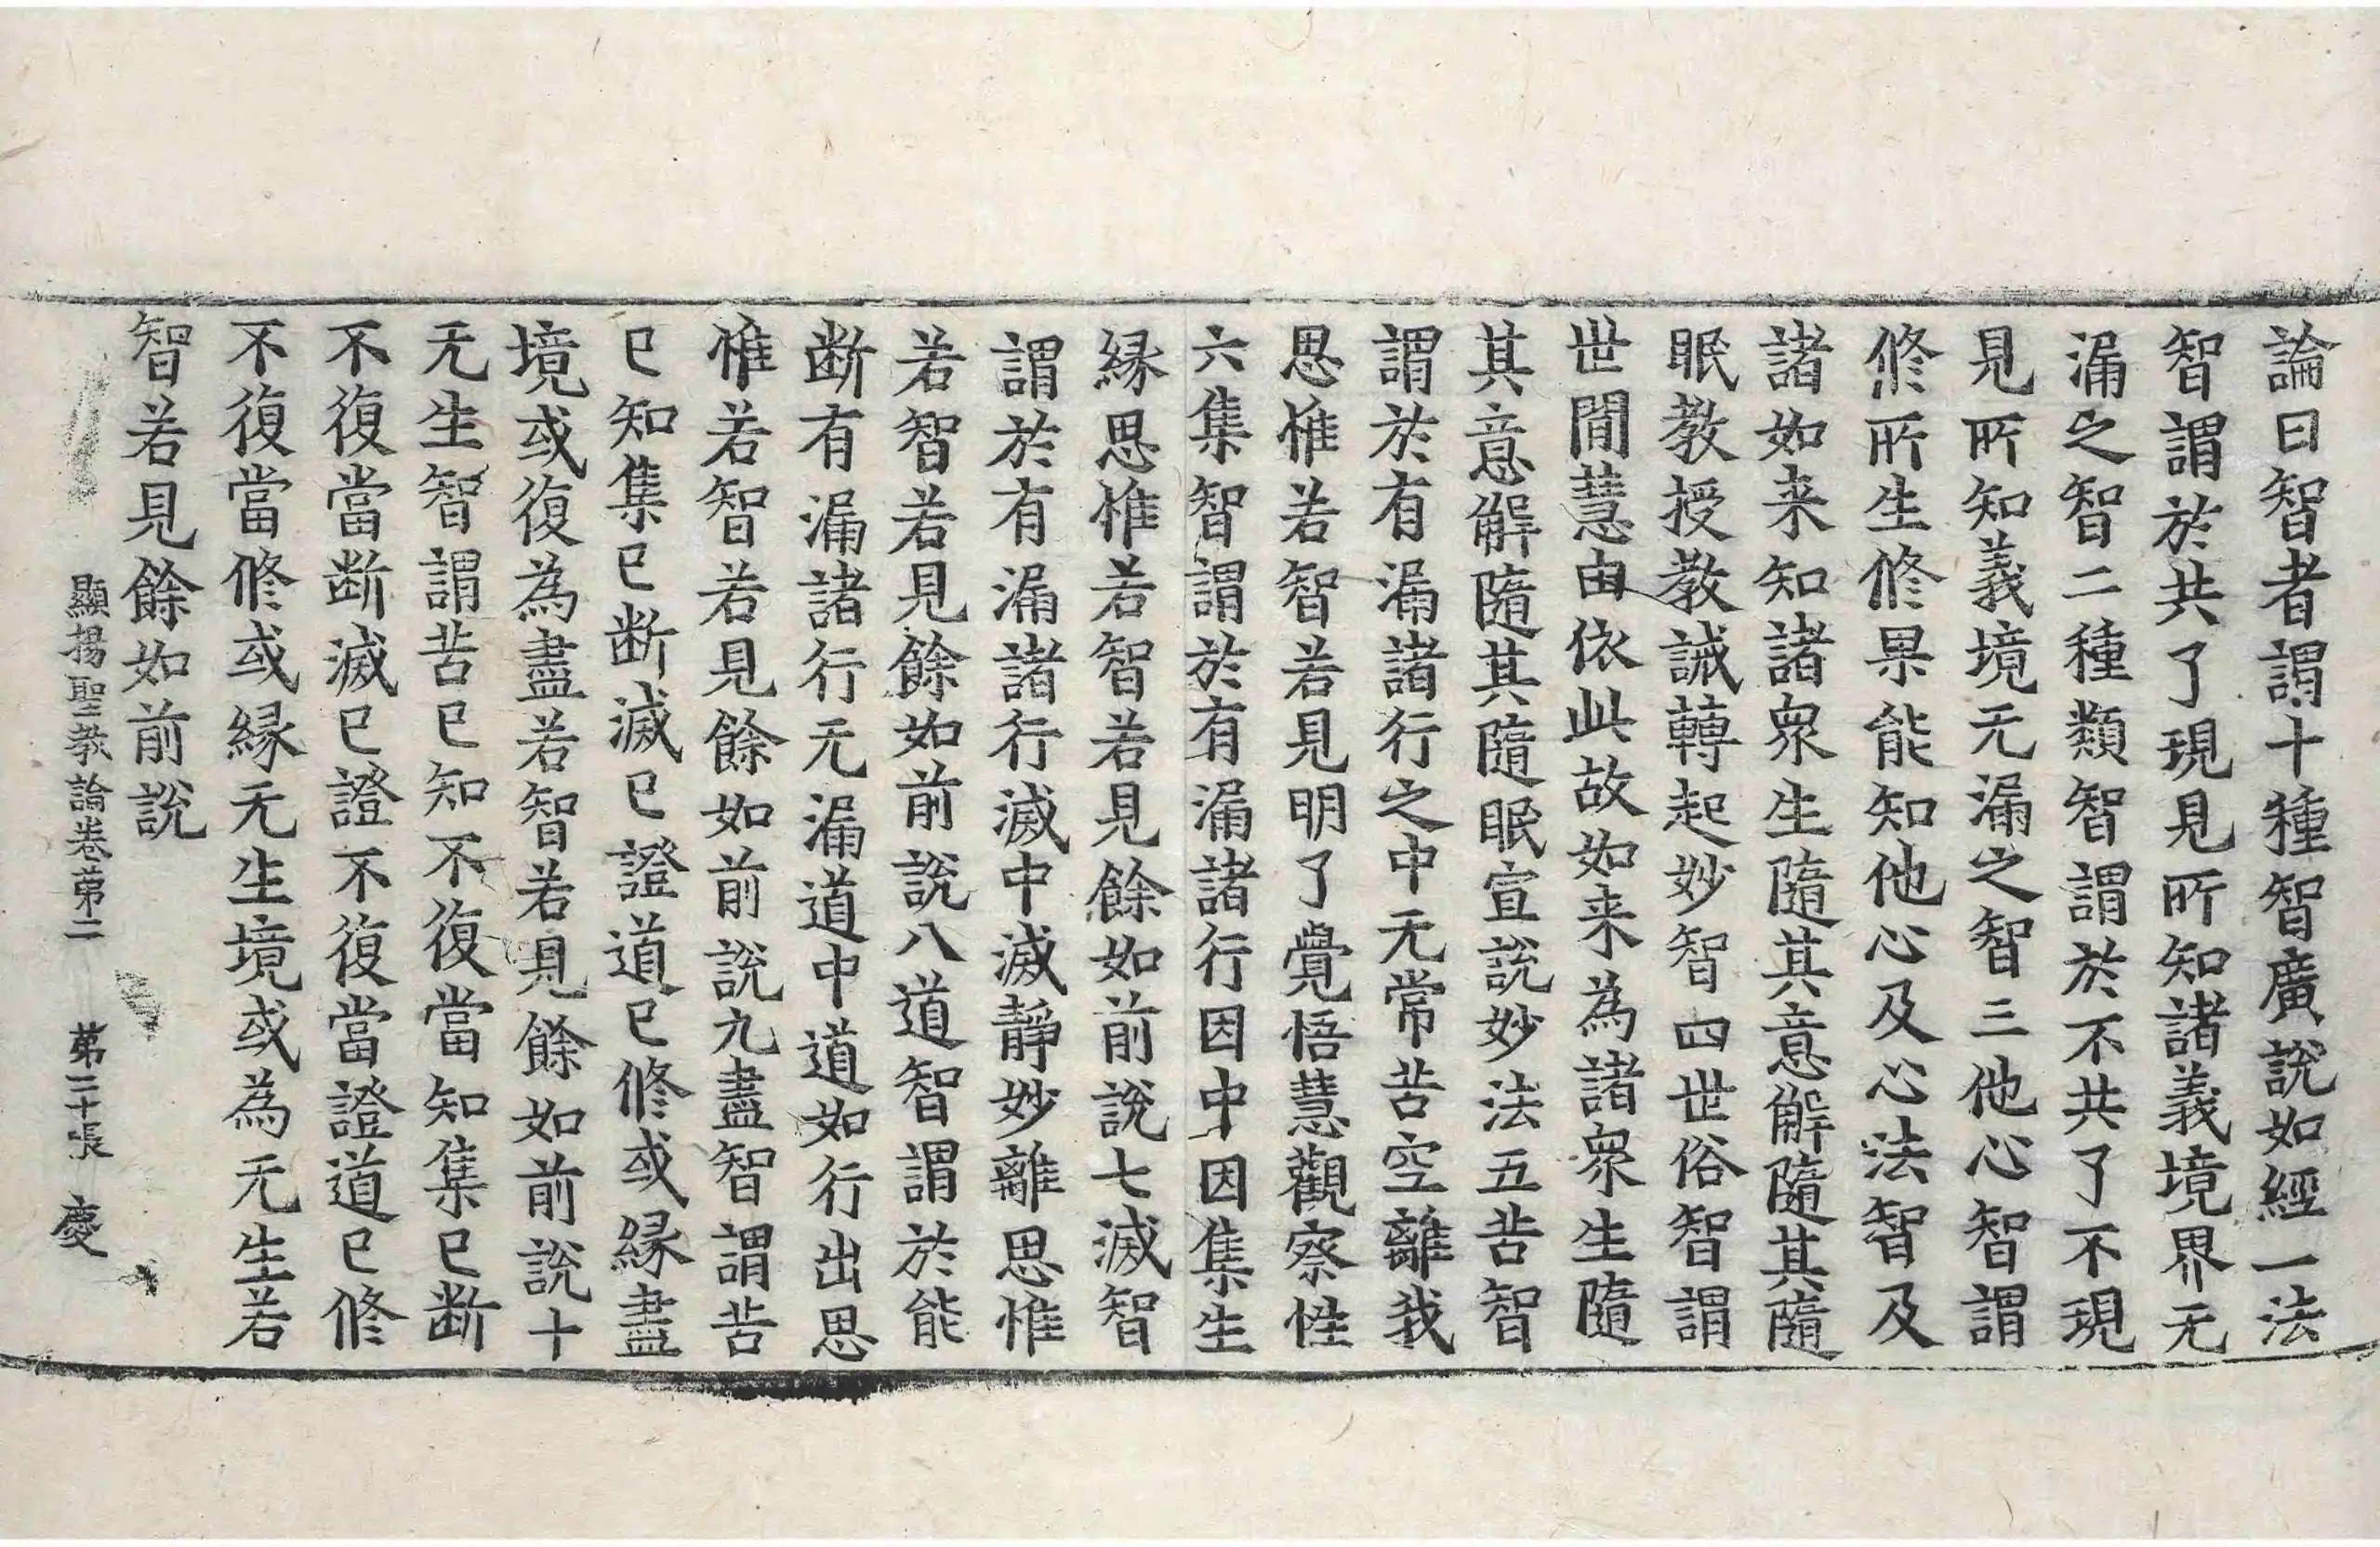 論曰智者謂十種智廣說如經一法
智謂於共了現見所知諸義境界无
漏之智二種類智謂於不共了不現
見所知義境无漏之智三他心智謂
修所生修果能知他心及心法智及
諸如来知諸衆生隨其意解隨其隨
眠教授教誡轉起妙智四世俗智謂
世間慧由依此故如来為諸衆生隨
其意解隨其隨眠宣說妙法五苦智
謂於有漏諸行之中无常苦空離我
思惟若智若見明了覺悟慧觀察性
六集智謂於有漏諸行因中因集生
縁思惟若智若見餘如前說七滅智
謂於有漏諸行滅中滅靜妙離思惟
若智若見餘如前說八道智謂於能
断有漏諸行无漏道中道如行出思
惟若智若見餘如前說九盡智謂苦
已知集已断滅已證道已修或縁盡
境或復為盡若智若見餘如前說十
无生智謂苦已知不復當知集已断
不復當断滅已證不復當證道已修
不復當修或縁无生境或為无生若
智若見餘如前說
顯揚聖教論卷第二 第二十張 慶